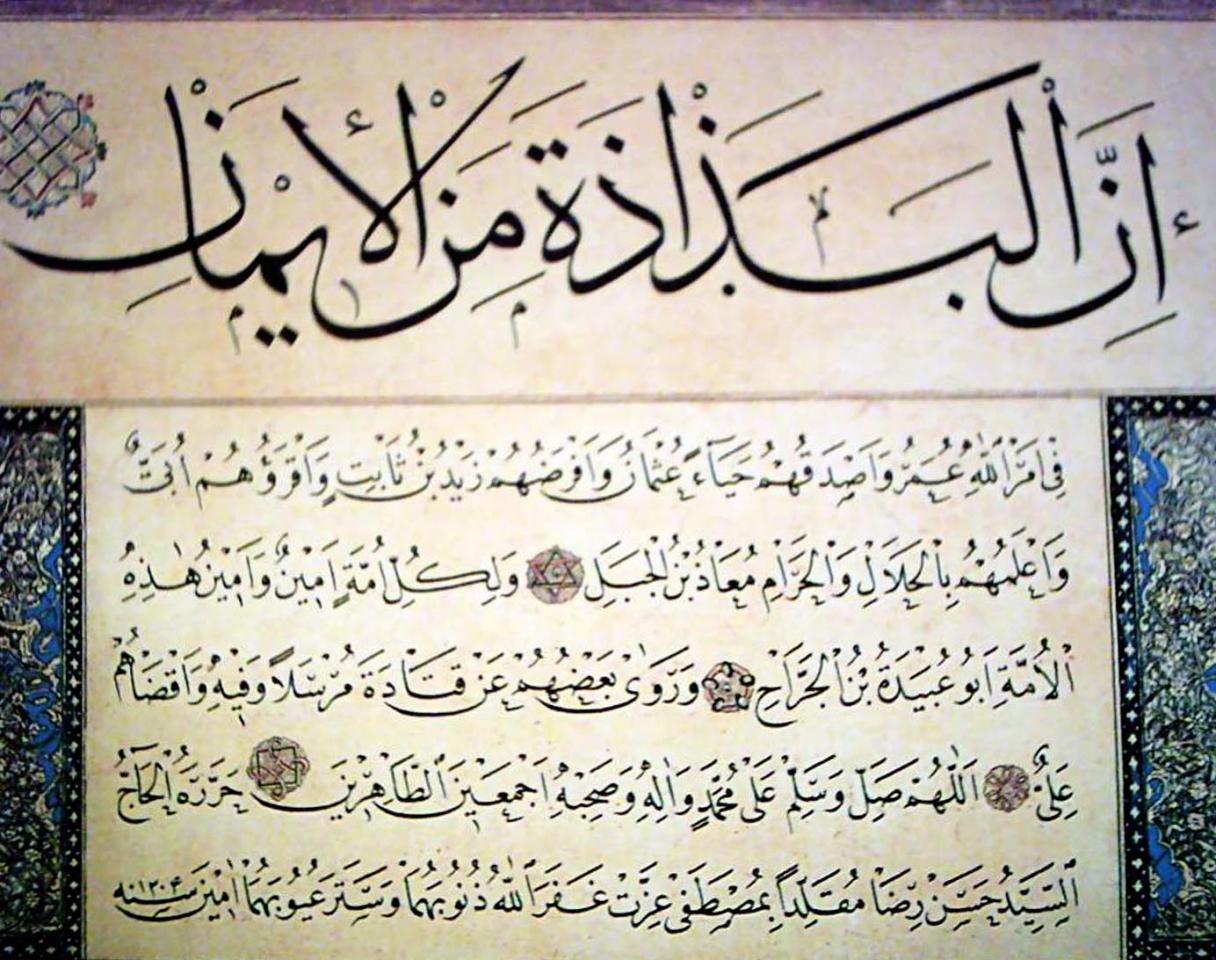 إِنَّ الْبَذَاذَةَ مِنَ الْإِيمَانِ
فِي اَمْرِ اللّٰهِ عُمَرُ وَاَصْدَقُهُمْ حَيَاءً عُثْمَانُ وَاَفْرَضُهُمْ زَيْدُ بْنُ ثَابِتٍ وَاَقْرَؤُهُمْ اُبَيٌّ
وَاَعْلَمُهُمْ بِالْحَلَالِ وَالْحَرَامِ مُعَاذُ بْنُ الْجَبَلِ وَلِكُلِّ اُمَّةٍ اَمِينٌ وَاَمِينُ هٰذِهِ
الْاُمَّةِ اَبُو عُبَيْدَةُ بْنُ الْجَرَّاحِ وَرَوٰى بَعْضُهُمْ عَنْ قَتَادَةَ مُرْسَلًا وَفِيهِ وَاَقْضَاهُمْ
عَلِيٌّ اَللّٰهُمَّ صَلِّ وَسَلِّمْ عَلٰى مُحَمَّدٍ وَاٰلِهِ وَصَحْبِهِ اَجْمَعِينَ الطَّاهِرِينَ حَرَّرَهُ الْحَاجُّ
السَّيِّدُ حَسَنْ رِضَا مُقَلِّدًا بِمُصْطَفٰى عِزَّتْ غَفَرَ اللّٰهُ ذُنُوبَهُمَا وَسَتَرَ عُيُوبَهُمَا اٰمِينَ سنه ١٣٠٤